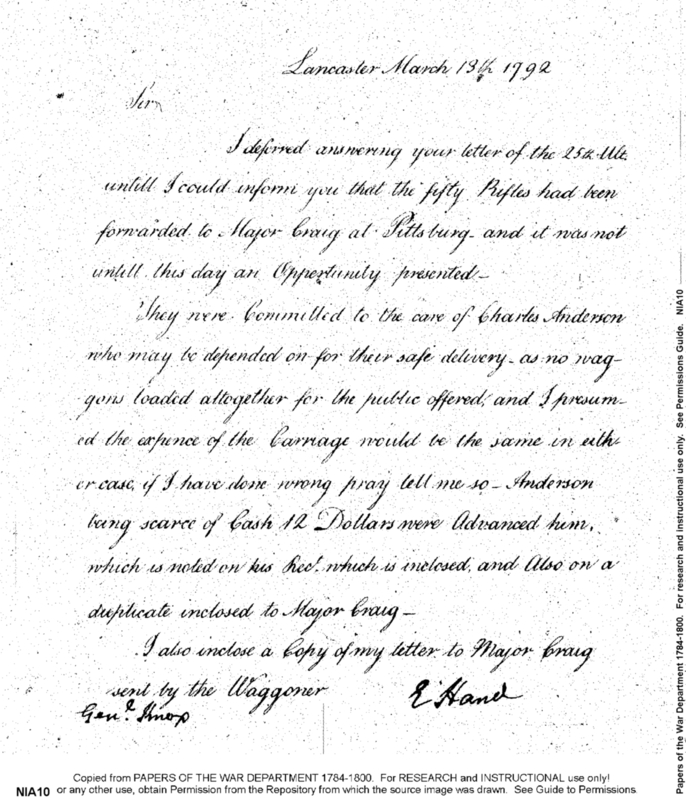 Lancaster March 13th 1792
Sir
I deferred answering your letter of the 25th Ult.
untill I could inform you that the fifty Rifles had been
forwarded to Major Craig at Pittsburg - and it was not
untill this day an Oppertunity presented -
They were Committed to the care of Charles Anderson
who may be depended on for their safe delivery - as no wag-
gons loaded altogether for the public offered, and I presum-
ed the expence of the Carriage would be the same in eith-
er case, if I have done wrong pray tell me so - Anderson
being scarce of Cash 12 Dollars were Advanced him,
which is noted on his Rect. which is inclosed, and Also on a
duplicate inclosed to Major Craig -
I also inclose a Copy of my letter to Major Craig
sent by the Waggoner
E Hand
Genl. Knox
Copied from PAPERS OF THE WAR DEPARTMENT 1784-1800. For RESEARCH and INSTRUCTIONAL use only!
NIA10 or any other use, obtain Permission from the Repository from which the source image was drawn. See Guide to Permissions
Papers of the War Department 1784-1800. For research and instructional use only. See Permissions Guide. NIA10